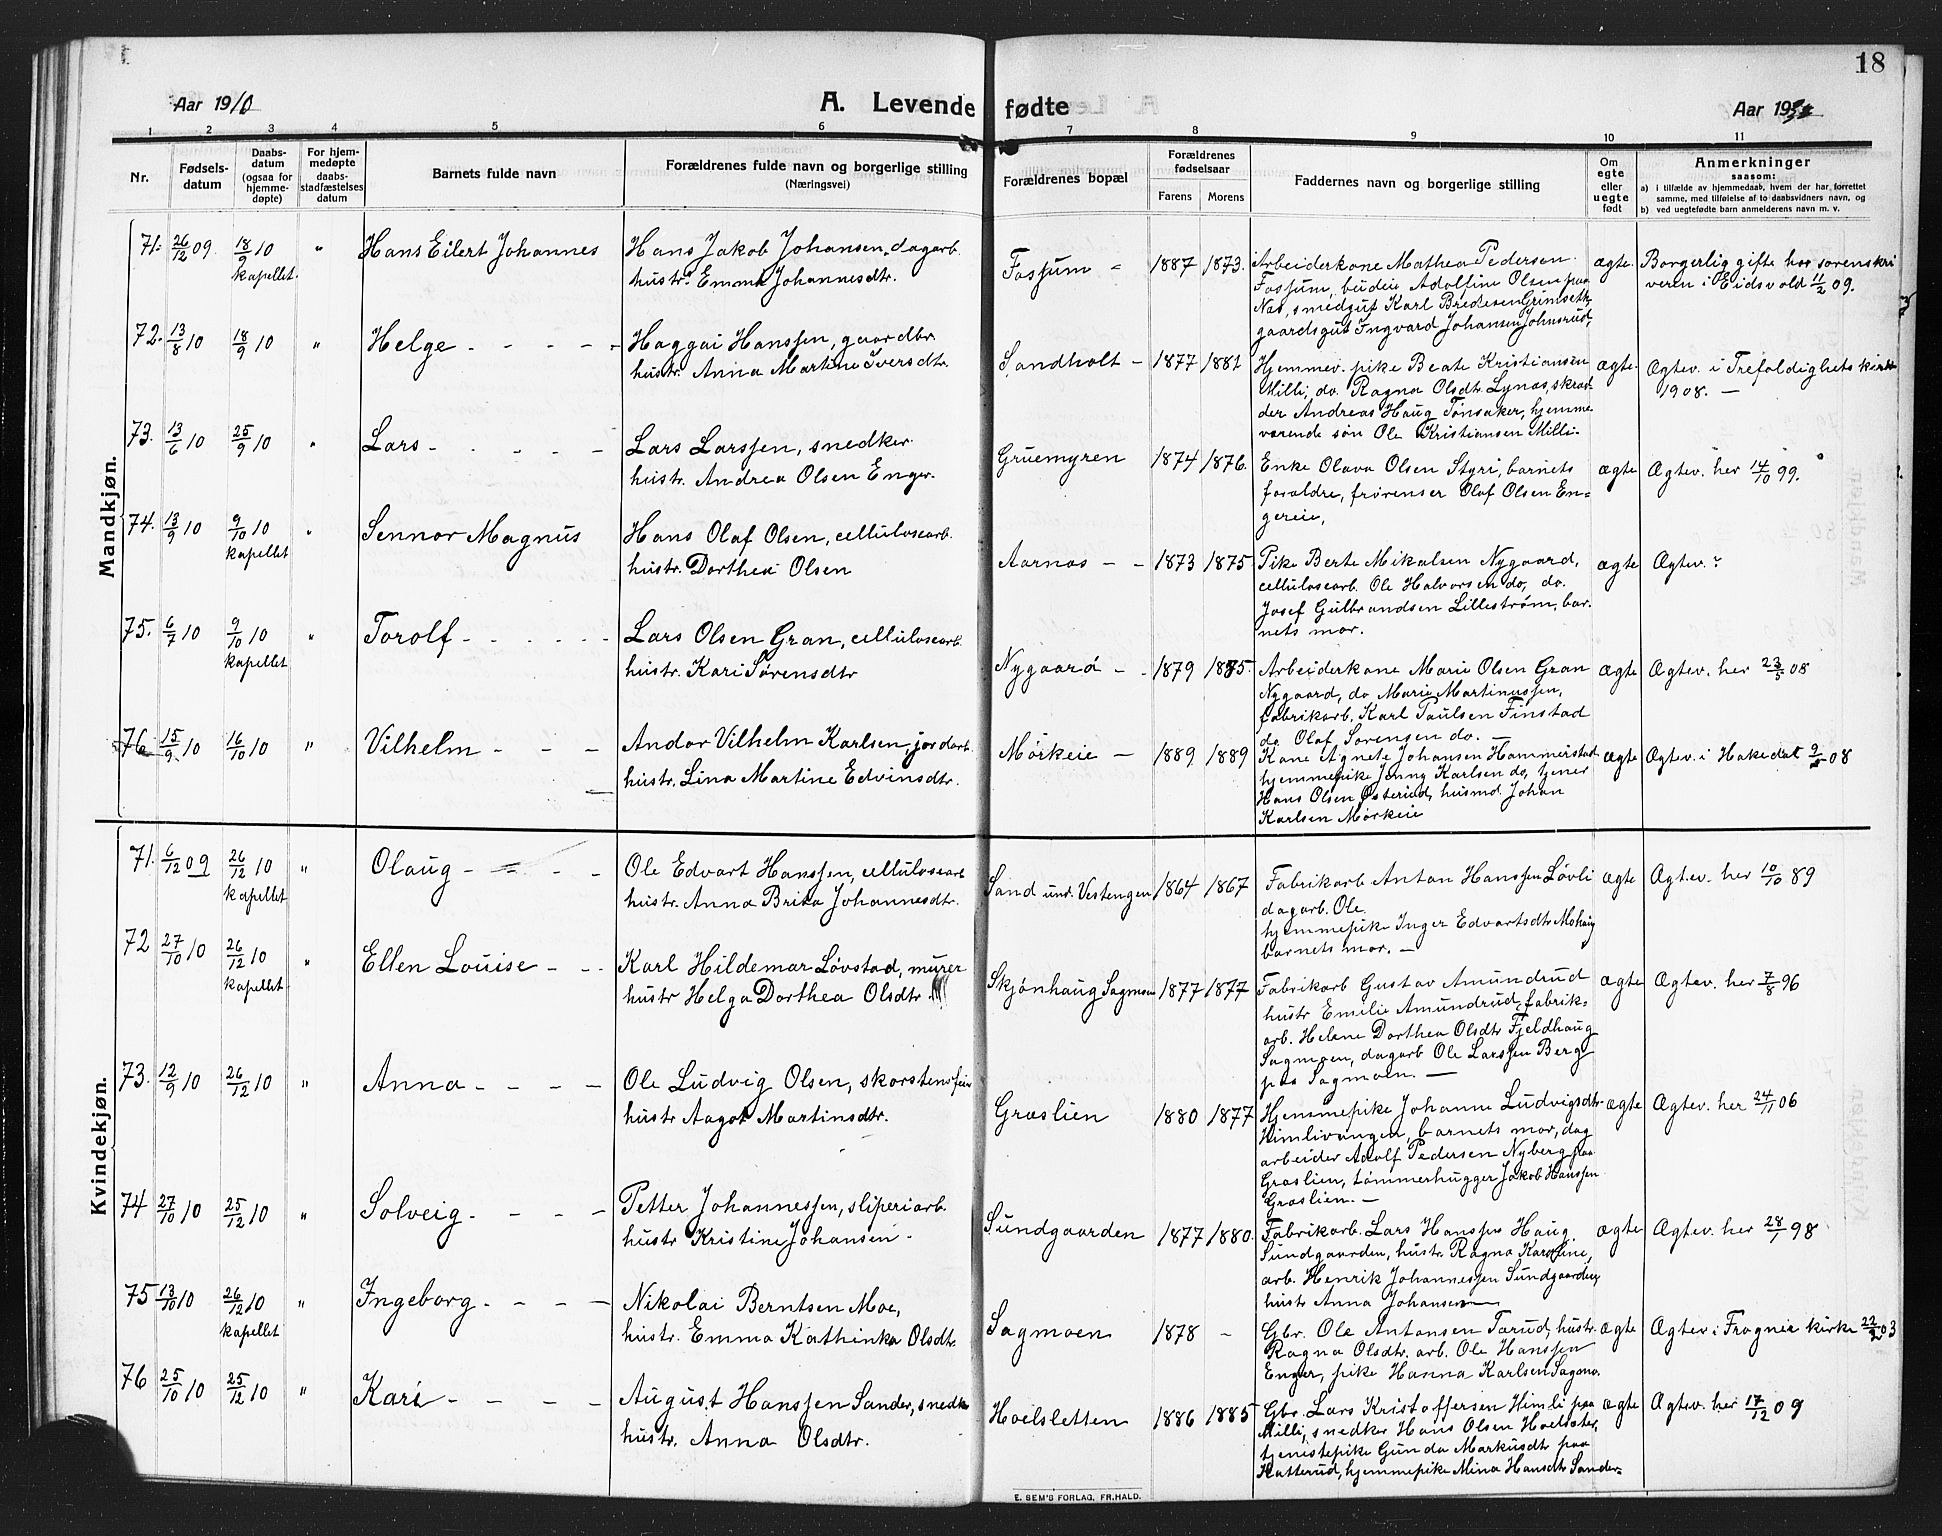 18
Aar 1910
A. Levende fødte
Aar 19
1 2 3 4 5 6 7 8 9 10 11
Nr.
Fødsels-
datum
Daabs-
datum
(ogsaa for
hjemme-
døpte)
For hjem-
medøpte
daabs-
stadfæstelses
datum
Barnets fulde navn
Forældrenes fulde navn og borgerlige stilling
(Næringsvei)
Forældrenes bopæl
Forældrenes
fødselsaar
Farens
Morens
Faddernes navn og borgerlige stilling
Om
egte
eller
uegte
født
Anmerkninger
saasom:
a) i tilfælde av hjemmedaab, hvem der har forrettet
samme, med tilføielse af to daabsvidners navn, og
b) ved uegtefødte barn anmelderens navn m. v.
Mandkjøn.
71. 26/12 09 18/9 10 " Hans Eilert Johannes
kapellet.
Hans Jakob Johansen, dagarb.
hustr. Emma Johannesdtr.
Fossum - 1887 1873.
Arbeiderkone Mathea Pedersen
Fossum, budeie Adolfine Olsen paa
Næs, smedgut Karl Bredesen Grimseth,
gaardsgut Ingvard Johansen Johnsrud,
ægte.
Borgerlig gifte hos sorenskri
veren i Eidsvold 11/2 09.
72. 13/8 10 18/9 10 " Helge - - - -
Haggai Hanssen, gaardbr.
hustr. Anna Martine Iversdtr.
Sandholt - 1877 1881
Hjemmev. pike Beate Kristiansen
Milli, do. Ragna Olsdtr. Lynæs, skræd
der Andreas Haug Tønsaker, hjemme
værende søn Ole Kristiansen Milli.
ægte.
Ægtev. i Trefoldighets kirke
1908. -
73. 13/6 10 25/9 10 " Lars - - - -
Lars Larssen, snedker
hustr. Andrea Olsen Enger.
Gruemyren 1874 1876.
Enke Olava Olsen Styri, barnets
forældre, frørenser Olaf Olsen En=
gereie,
ægte
Ægtev. her 14/10 99.
74. 13/9 10 9/10 10 " Sennor Magnus
kapellet
Hans Olaf Olsen, cellulosearb.
hustr. Dorthea Olsen
Aarnæs - - 1873 1875
Pike Berte Mikalsen Nygaard,
cellulosearb. Ole Halvorsen do, do.
Josef Gulbrandsen Lillestrøm, bar.
nets mor.
ægte
Ægtev. ?
75. 6/7 10 9/10 10 " Torolf - - - - -
kapellet
Lars Olsen Gran, cellulosearb.
hustr. Kari Sørensdtr
Nygaard - - 1879 1885.
Arbeiderkone Marie Olsen Gran
Nygaard, do Marie Martinussen,
fabrikarb. Karl Paulsen Finstad
do Olaf Sørensen do. -
ægte
Ægtev. her 23/5 08
76. 15/9 10 16/10 10 " Vilhelm - - -
Andor Vilhelm Karlsen, jordarb.
hustr. Lina Martine Edvinsdtr.
Mørkeie - 1889 1889
Kone Agnete Johansen Hammerstad
hjemmepike Jenny Karlsen do, tjener
Hans Olsen Østerud, husmd. Johan
Karlsen Mørkeie
ægte
Ægtev. i Hakedal 08
Kvindekjøn.
71. 6/12 09 26/12 10 " Olaug - - -
kapellet
Ole Edvart Hanssen, cellulosearb
hustr. Anna Brita Johannesdtr.
Sand und. Vestengen 1864 1867
Fabrikarb Anton Hanssen Løvli
dagarb. Ole.
hjemmepike Inger Edvartsdtr Mohaug
barnets mor. -
ægte
Ægtev. her 10/10 89
72 27/10 10 26/12 10 " Ellen Louise - -
kapellet
Karl Hildemar Løvstad, murer
hustr Helga Dorthea Olsdtr.
Skjønhaug Sagmoen 1877 1877
Fabrikarb Gustav Amundrud
hustr Emilie Amundrud, fabrik=
arb. Helene Dorthea Olsdtr Fjeldhaug
Sagmoen, dagarb Ole Larssen Berg
paa Sagmoen. -
ægte
Ægtev. her 7/8 96
73. 12/9 10 26/12 10 " Anna - - - -
Ole Ludvig Olsen, skorstensfeier
hustr Aagot Martinsdtr.
Græslien 1880 1877
Hjemmepike Johanne Ludvigsdtr
Himlivangen, barnets mor, dag
arbeider Adolf Pedersen Nyberg paa
Græslien, tømmerhugger Jakob Hanssen
Græslien. -
ægte
Ægtev. her 24/11 06
74 27/10 10 25/12 10 " Solveig - - - -
Petter Johannessen, sliperiarb.
hustr Kristine Johansen -
Sundgaarden 1877 1880.
Fabrikarb. Lars Hanssen Haug
Sundgaarden, hustr. Ragna Karoline,
arb. Henrik Johannessen Sundgaarden
hustr Anna Johansen -
ægte
Ægtev. her 28/1 98
75 13/10 10 26/12 10 " Ingeborg - - - -
kapellet
Nikolai Berntsen Moe,
hustr. Emma Kathinka Olsdtr.
Sagmoen 1878 -
Gbr. Ole Antonsen Tørud, hustr
Ragna Olsdtr. arb. Ole Hanssen
Enger, pike Hanna Karlsen Sagmo.
ægte
Ægtev i Frogner kirke 03
76 25/10 10 25/12 10 " Kari - - - -
August Hanssen Sander, snedk
hustr. Anna Olsdtr.
Hoelsletten 1886 1885
Gbr. Lars Kristoffersen Himli paa
Milli, snedker Hans Olsen
tjenestepike Gunda Markusdtr paa
Katterud, hjemmepike Mina Hansdtr Sander-
ægte
Ægtev. her 17/12 09
E. SEM'S FORLAG, FR.HALD.